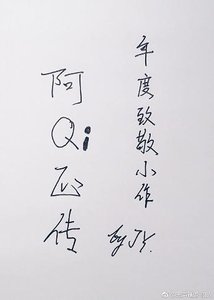 年度致敬小作
阿Qi正传